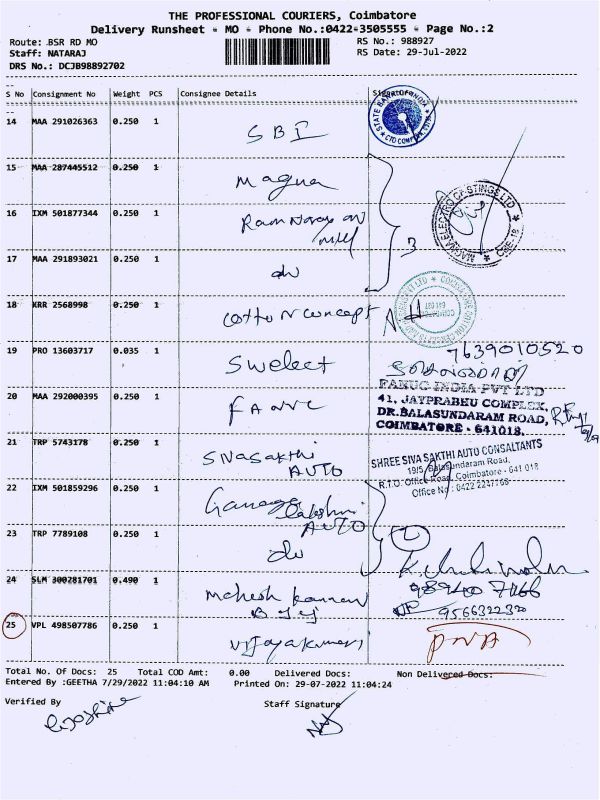 THE PROFESSIONAL COURIERS, Coimbatore
Delivery Runsheet - MO - Phone No.:0422-3505555 - Page No.:2
Route: .BSR RD MO
RS No.: 988927
Staff: NATARAJ
RS Date: 29-Jul-2022
DRS No.: DCJB98892702
S No Consignment No Weight PCS Consignee Details Signature
STATE BANK OF INDIA
14 MAA 291026363 0.250 1 SBI
15 MAA 287445512 0.250 1 Magna
MAGNA ELECTRO CASTINGS LTD
16 IXM 501877344 0.250 1 Ram Narayan
Mill
3
17 MAA 291893021 0.250 1 do
18 KRR 2568998 0.250 1 Cotton Concept
19 PRO 13603717 0.035 1 Swelect
7639010520
20 MAA 292000395 0.250 1 FANUC
FANUC INDIA PVT LTD
41, JAYPRABHU COMPLEX,
DR.BALASUNDARAM ROAD,
COIMBATORE - 641018.
21 TRP 5743178 0.250 1 Sivasakthi
AUTO
SHREE SIVA SAKTHI AUTO CONSULTANTS
19/5, Balasundaram Road,
R.T.O. Office Road, Coimbatore - 641 018
Office No : 0422 2247768
22 IXM 501859296 0.250 1 Ganaga
Lakshmi
AUTO
23 TRP 7789108 0.250 1 do
24 SLM 300281701 0.490 1 Mahesh Kannan
9566322320
25 VPL 498507786 0.250 1 Vijayakumari
Total No. Of Docs: 25 Total COD Amt: 0.00 Delivered Docs: Non Delivered Docs:
Entered By :GEETHA 7/29/2022 11:04:10 AM Printed On: 29-07-2022 11:04:24
Verified By
Staff Signature